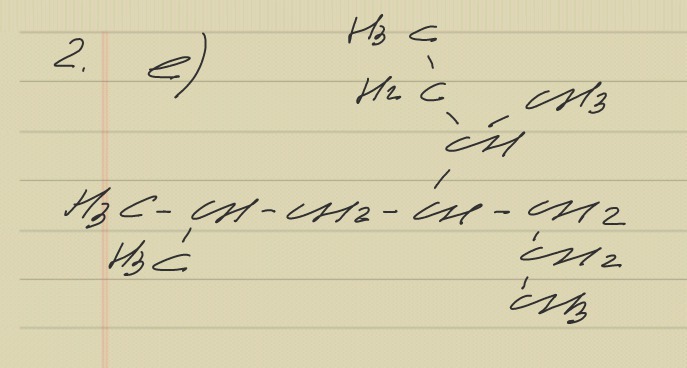 2. e) H3 C
H2 C CH3
CH
H3 C - CH - CH2 - CH - CH2
H3 C CH2
CH3